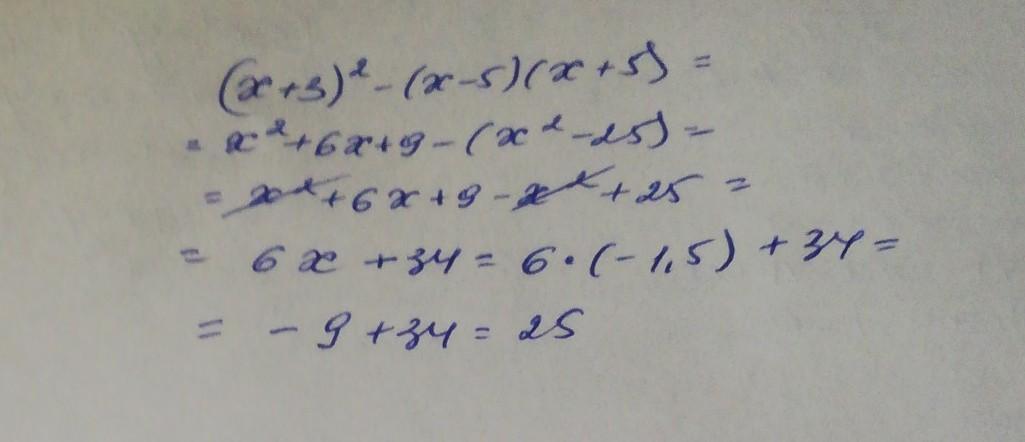 (x+3)² - (x-5)(x+5) =
= x²+6x+9-(x²-25) =
= x²+6x+9-x²+25 =
= 6x+34 = 6·(-1,5)+34 =
= -9+34 = 25